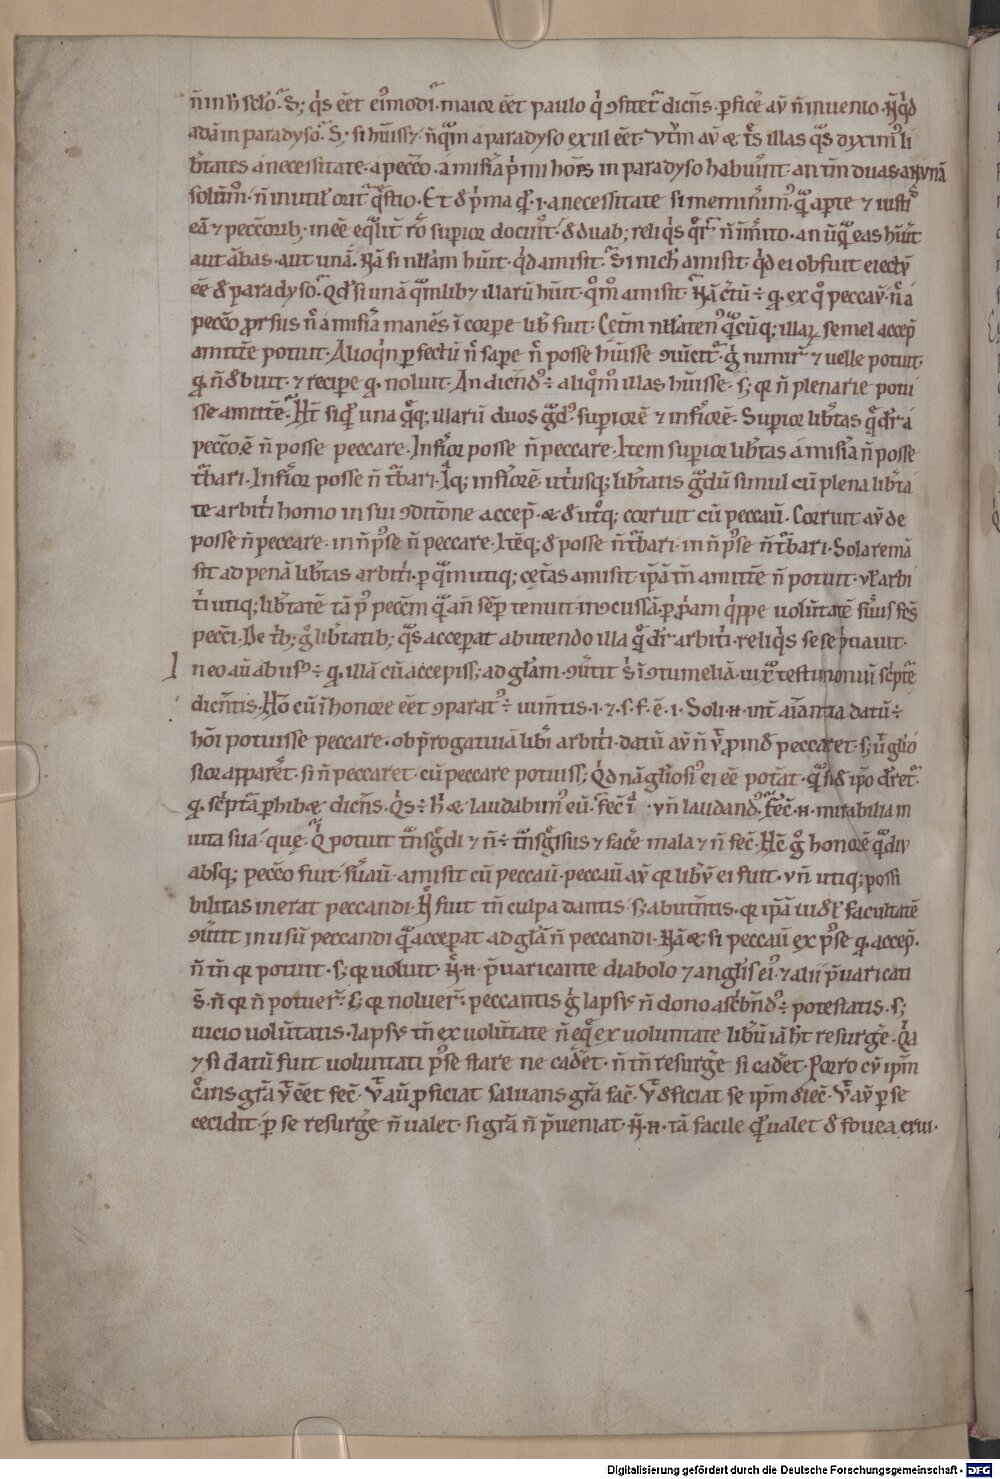 n̄ in h̄ sclo. S; q̇s eēt ei᷒modi. maior eēt paulo q̇ ↄfitet᷑ dicn̄s. ꝑfice᷒ aū n̄ inuenio. Nq̇d
adā in paradyso. S; si hūiss&. n̄qͣm a paradyso exul eēt. Vtͫ aū & tr̄s illas qͣs dyximꝰ li
b̄tates a necessitate. a pecc̄o. a misīa p̍mi hoēs in paradyso habuer̄t. an tm̄ duas an unā
solūm̊. n̄ inutil᷒ orit᷑ q̄stio. Et d̄ p̍ma qd̄. i. a necessitate si meminimꝰ. qͣm aꝑte ⁊ iusti
eā ⁊ peccorib; inēē eqͣlit̄ rō supior docuit. d̄ duab; reliq̇s qͦr᷑ n̄ īmīto. an ūqͣm eas hūit
aut ābas. aut unā. Nā si nłłam hūit. q̇d amisit. Si nich̄ amisit q̇d ei obfuit eiectū
eē d̄ paradyso. Qd̄ si unā qͣmlib& illarū hūit. qͦm̊ amisit. Nā c̄tū ÷ qꝫ ex qͦ peccaū. n̄ á
pecc̄o ꝓrsus n̄ a misīa manēs ī corpe lib̄ fuit. Cet̄m nłłatenꝰ qͣcūq; illaꝝ semel accep̄
amitte᷒ potuit. Alioq̇n ꝑfectū n̄ sape᷒ n̄ posse hūisse ↄuīcit᷑. g̊ nimir᷒ ⁊ uelle potuit.
qꝫ n̄ debuit. ⁊ recipe᷒ qꝫ noluit. An dicēdꝰ ÷ aliqͦm̊ illas hūisse. s; qꝫ n̄ plenarie potu
isse amitte᷒. Ht̄ siqd̄ una qͣq; illarū duos gͣdꝰ. supiorē ⁊ infiorē. Supior lib̄tas qͣ dr̄ á
pecc̄o. ē n̄ posse peccare. Infior posse n̄ peccare. Item supior lib̄tas á misīa n̄ posse
tͬbari. Infior posse n̄ tͬbari. Iͣq; infiorē utiusq; lib̄tatis gͣdū simul cū plena lib̄ta
te arbitͥ homo in sui ↄditōne accep̄. & d̄ utͦq; corruit cū peccaū. Corruit aū de
posse n̄ peccare. in n̄ pꝰse n̄ peccare. Itēq; d̄ posse n̄ tͬbari. in n̄ pꝰse n̄ tͬbari. Sola remā
sit ad penā lib̄tas arbitͥ. ꝑ qͣm utiq; cēt̄as amisit. ip̄ā tn̄ amitte᷒ n̄ potuit. ul̄ arbi
tͥ utiq; lib̄tatē tā pꝰ pecc̄m qͣm an̄ sēꝑ tenuit incↄcussā. ꝑ ꝓp̄am q̍ppe uolūtatē s̄uus fc̄s
pecc̄i. De tͥb; g̊ lib̄tatib; qͣs acceperat abutendo illa qͣ dr̄ arbitͥ. reliq̍s sese p̍uauit.
I n eo aū abusꝰ ÷ qꝫ illā cū accepiss; ad gl̄am. ↄūtit s̄ ī ↄtumeliā. iuxͣ testimoniū sc̍ptē
dicn̄tis. Hō cū ī honore eēt ↄparatꝰ ÷ iumn̄tis. i. ⁊. s. f. ē. i. Soli. n. int̄ aīantia datū ÷
hōi potuisse peccare. ob p̄rogatiuā lib̄i arbitͥ. datū aū n̄ v̄ ꝓind̄ peccaret. s; ū gl̄io
sior apparet. si n̄ peccaret. cū peccare potuiss;. Q̇d nā gl̄iosiꝰ ei eē pot̄at. qͣ si d̄ ip̄o dr̄et᷑
qꝫ sc̍ptͣ ꝑhib&. dicn̄s. Q̍s ÷ h̍ & laudabimꝰ eū. fec̄ ı̍ vn̄ laudandꝰ. fec̄. n. mirabilia in
uita sua. que. Q̍ potuit tͣnsg̍di ⁊ n̄ ÷ tͣnsg̍ssus ⁊ face᷒ mala ⁊ n̄ fec̄. Hc̄ g̊ honorē qͣdiu
absq; pecc̄o fuit. s̄uaū. amisit cū peccaū. peccaū aū qꝫ lib̄ū ei fuit. vn̄ utiq; possi
bilitas inerat peccandi. Nͨ fuit tn̄ culpa dantis. s; abutn̄tis. qꝫ ip̄ā uidl̄ facultatē
ↄūtit in usū peccandi qͣm acceperat ad gl̄ā n̄ peccandi. Nā & si peccaū ex pꝰse qꝫ accep̄.
n̄ tn̄ qꝫ potuit. s; qꝫ uoluit. Nͨ. n. p̄uaricante diabolo ⁊ angl̄is eiꝰ ⁊ alii p̄uaricati
s̄. n̄ qꝫ n̄ potuer̄. s; qꝫ noluer̄. peccantis g̊ lapsꝰ n̄ dono asc̍bn̄dꝰ ÷ potestatis. s;
uicio uolūtatis. lapsꝰ tn̄ ex uolūtate n̄ eqͣ ex uoluntate lib̄ū iā ht̄ resurge᷒. Qͣ
⁊ si datū fuit uoluntati pꝰse stare ne caderet. n̄ tn̄ resurge᷒ si caderet. Porro cū ip̄m
c̊ans grā v̄ eēt fec̄. v̄ aū ꝓficiat saluans grā fac̄. v̄ d̄ficiat se ip̄m deiec̄. v̄ aū ꝑ se
cecidit. ꝑ se resurge᷒ n̄ ualet. si grā n̄ p̄ueniat. Nͨ. n. tā facile qͥ ualet d̄ fouea exui.
Digitalisierung gefördert durch die Deutsche Forschungsgemeinschaft - DFG